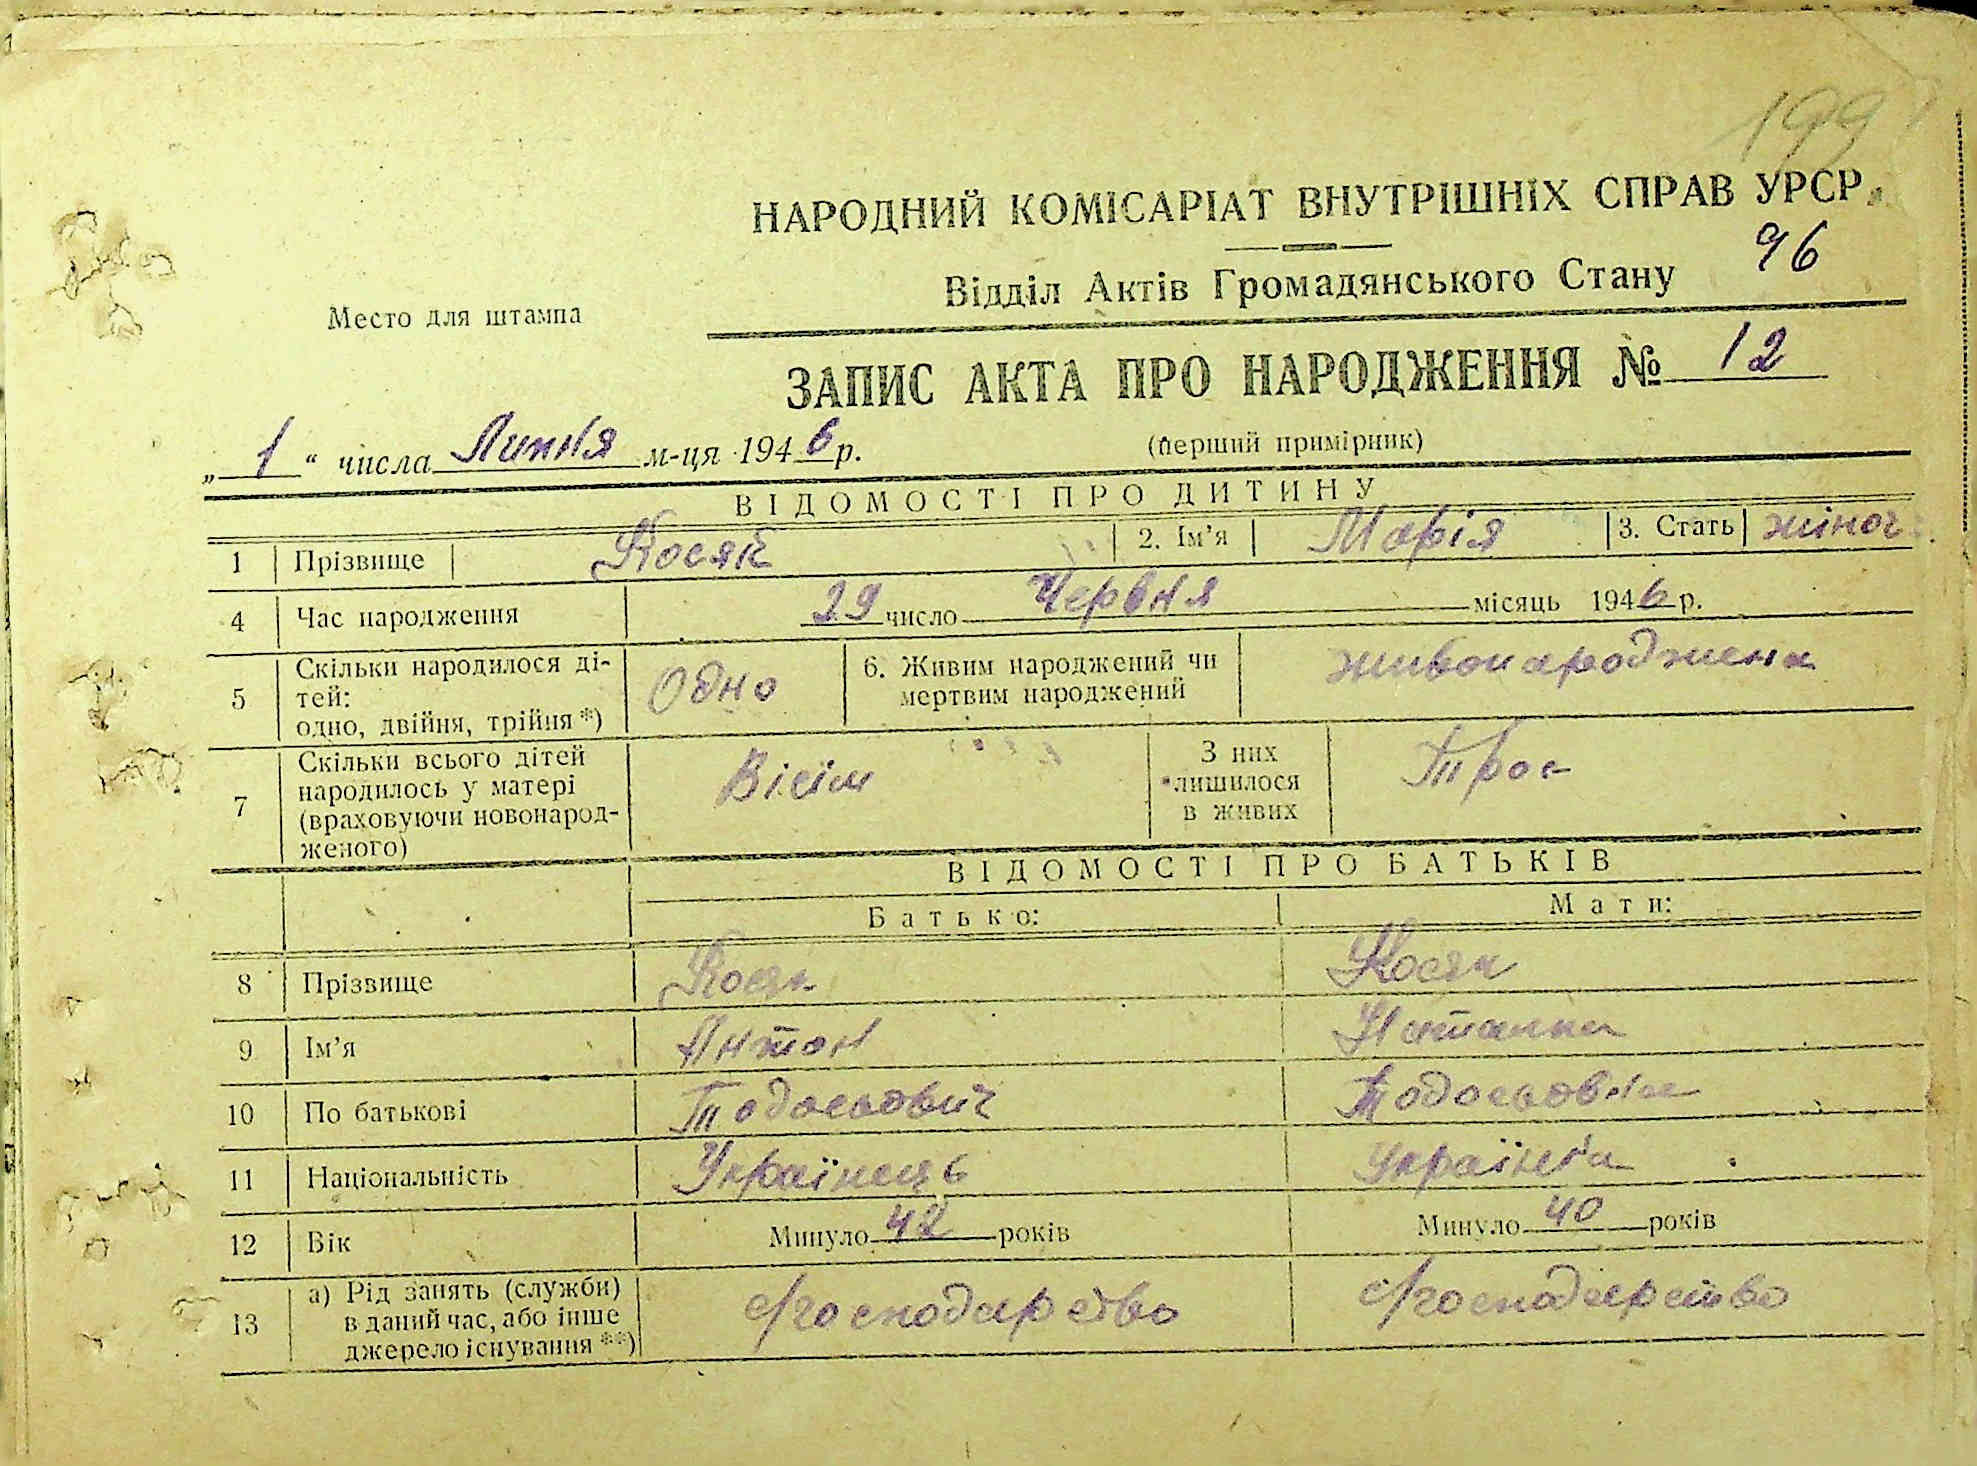 199
НАРОДНИЙ КОМІСАРІАТ ВНУТРІШНІХ СПРАВ УРСР
96
Відділ Актів Громадянського Стану
Место для штампа
ЗАПИС АКТА ПРО НАРОДЖЕННЯ № 12
„ 1 “ числа Липня м-ця 1946 р.
(перший примірник)
ВІДОМОСТІ ПРО ДИТИНУ
1 Прізвище Косяк 2. Ім'я Марія 3. Стать жіноч
4 Час народження 29 число Червня місяць 1946 р.
5 Скільки народилося ді-
тей:
одно, двійня, трійня *) Одно 6. Живим народжений чи
мертвим народжений живонароджена
7 Скільки всього дітей
народилось у матері
(враховуючи новонарод-
женого) Вісім З них
лишилося
в живих Троє
ВІДОМОСТІ ПРО БАТЬКІВ
Батько: Мати:
8 Прізвище Косяк Косяк
9 Ім'я Антон Наталка
10 По батькові Тодосьович Тодосьовна
11 Національність Українець Українка
12 Вік Минуло 42 років Минуло 40 років
13 а) Рід занять (служби)
в даний час, або інше
джерело існування **) с/господарство с/господарство